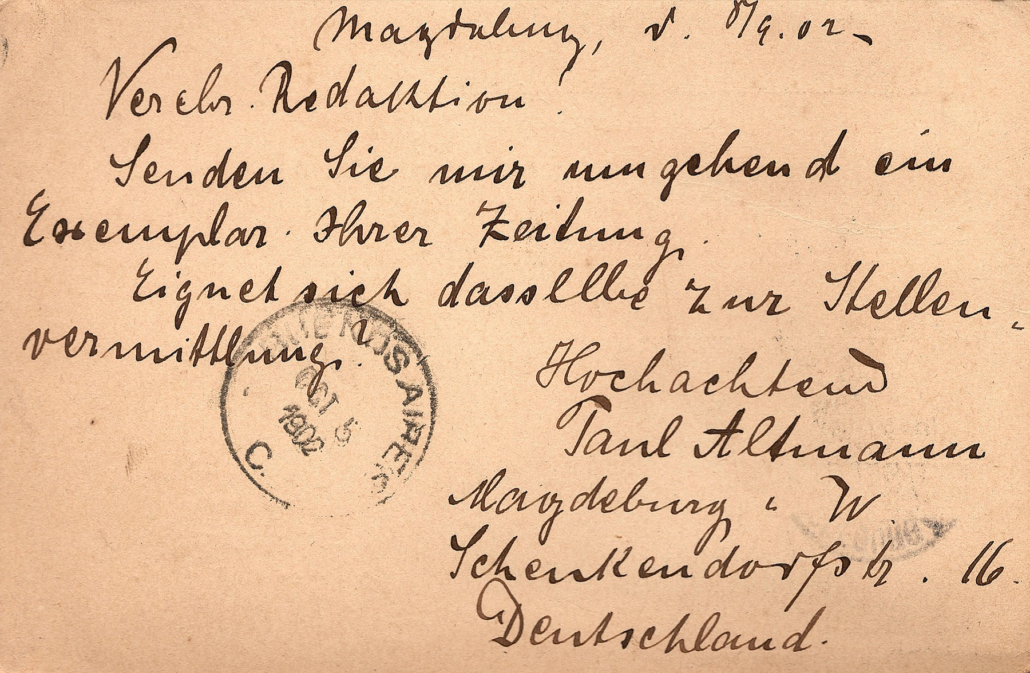 Magdeburg, d. 8/9.02-
Verehr. Redakktion!
Senden Sie mir umgehend ein
Exemplar Ihrer Zeitung.
Eignet sich dassellbe zur Stellen-
vermittlung?
Hochachtend
Paul Altmann
Magdeburg - W
Schenkendorfstr. 16.
Deutschland.
BUENOS AIRES
OCT 5
1902
C.